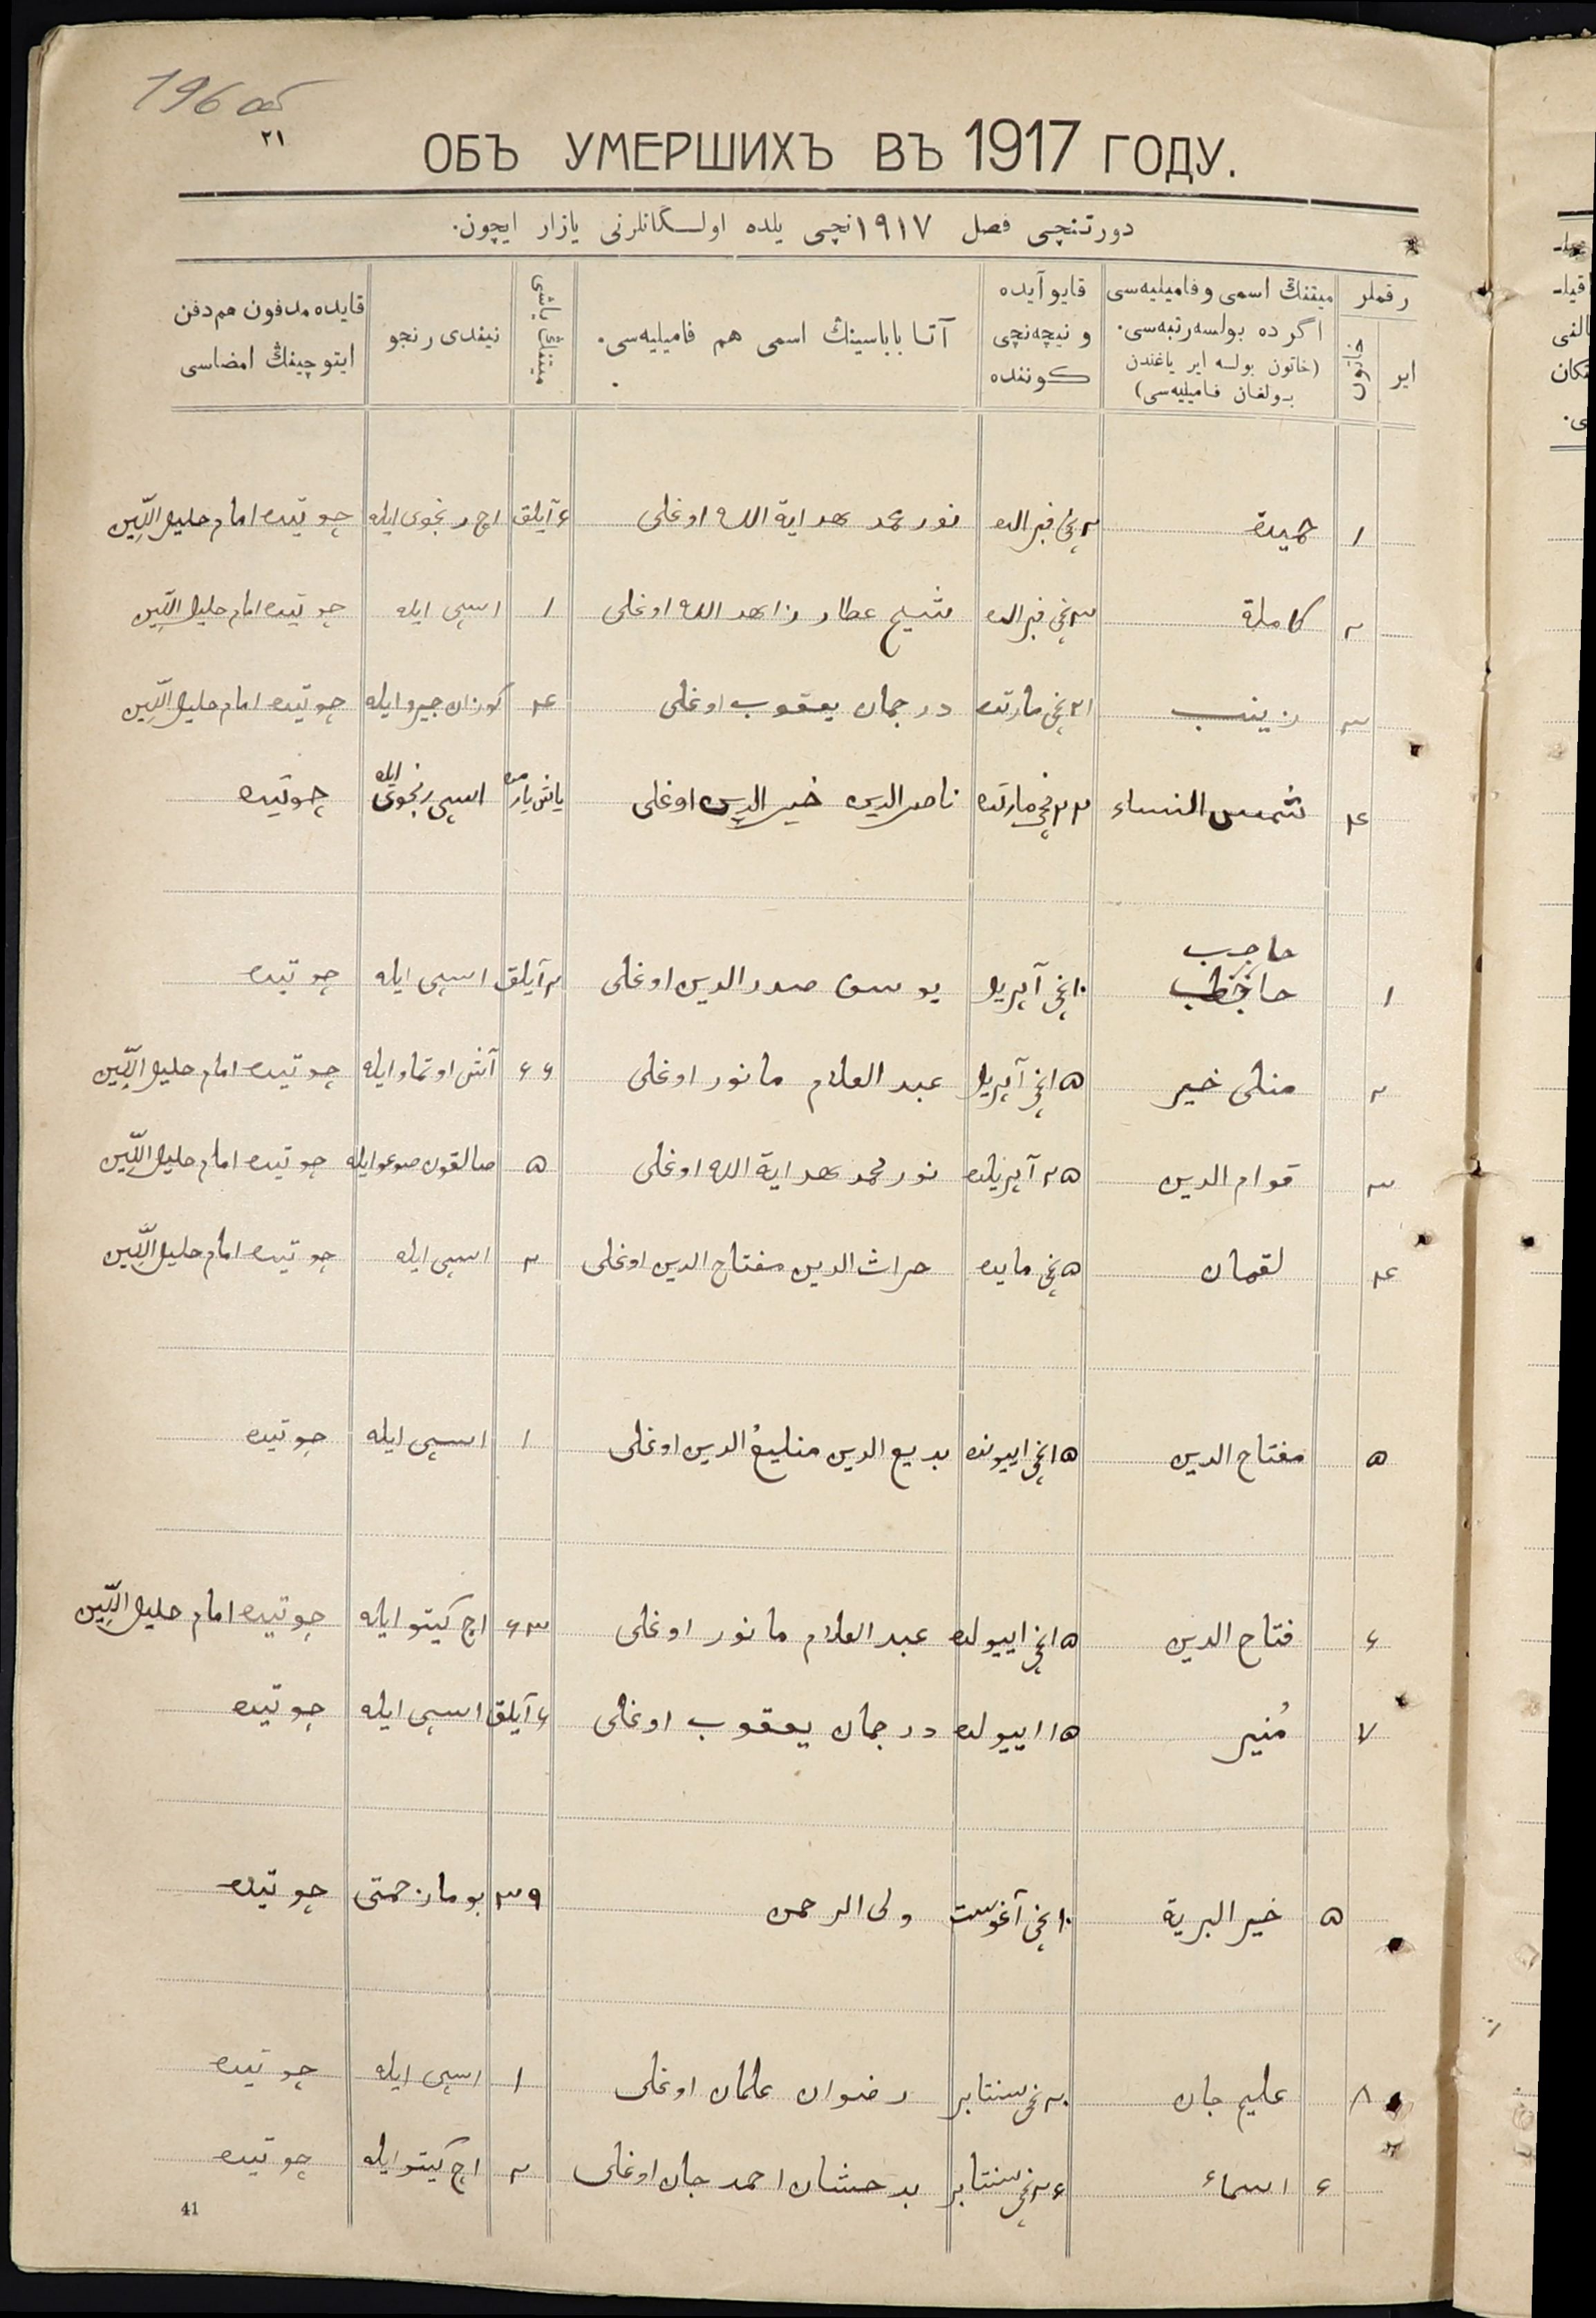 196 об
٢١
ОБЪ УМЕРШИХЪ ВЪ 1917 ГОДУ.
دورتنچی فصل ١٩١٧نچی یلده اولـگانلرنی یازار ایچون.
رقملر
ایر
خاتون
میتنڭ اسمی و فامیلیه‌سی اگر ده بولسه رتبه‌سی. (خاتون بولسه ایر یاغندن بولغان فامیلیه‌سی)
قایو آیده و نیچه‌نچی کوننده
آتا باباسینڭ اسمی هم فامیلیه‌سی.
میتنڭ یاشی
نیندی رنجو
قایده مدفون هم دفن ایتوچینڭ امضاسی
١ حمیدة ٢نچی فبرالده نورمحمد هدایة الله اوغلی ۶ آیلق اچ رنجوی ایله چوتیده امام جلیل الدّین
٢ کاملة ٣نچی فبرالده شیخ عطار زاهد الله اوغلی ١ اسپی ایله چوتیده امام جلیل الدّین
٣ زینب ٢١نچی مارتده درجمان یعقوب اوغلی ۴ کوزان جیرو ایله چوتیده امام جلیل الدّین
۴ شمس النساء ٢٢نچی مارتده ناصرالدین خیرالدین اوغلی یاش یارمده اسپی رنجوی ایله چوتیده
حاجب
١ ١٠نچی آپریل یوسف صدرالدین اوغلی ٢ آیلق اسپی ایله چوتیده
٢ منلی خیر ١۵نچی آپریل عبد العلام مانور اوغلی ۶۶ آش اوتماو ایله چوتیده امام جلیل الدّین
٣ قوام الدین ٢۵ آپریلده نورمحمد هدایة الله اوغلی ۵ صالقون صوغو ایله چوتیده امام جلیل الدّین
۴ لقمان ۵نچی مایده حراث الدین مفتاح الدین اوغلی ٢ اسپی ایله چوتیده امام جلیل الدّین
۵ مفتاح الدین ١۵نچی اییونده بدیع الدین منلیغ الدین اوغلی ١ اسپی ایله چوتیده
۶ فتاح الدین ١۵نچی اییولده عبد العلام مانور اوغلی ۶٣ اچ کیتو ایله چوتیده امام جلیل الدّین
٧ مُنیر ١۵ اییولده درجمان یعقوب اوغلی ۶ آیلق اسپی ایله چوتیده
۵ خیر البریة ١٠نچی آغوست ولی الرحمن ٣٩ بومار زحمتی چوتیده
٨ علیم جان ٢٠نچی سنتابر رضوان علمان اوغلی ١ اسپی ایله چوتیده
۶ اسماء ٢۶نچی سنتابر بدخشان احمد جان اوغلی ٢ اچ کیتو ایله چوتیده
41